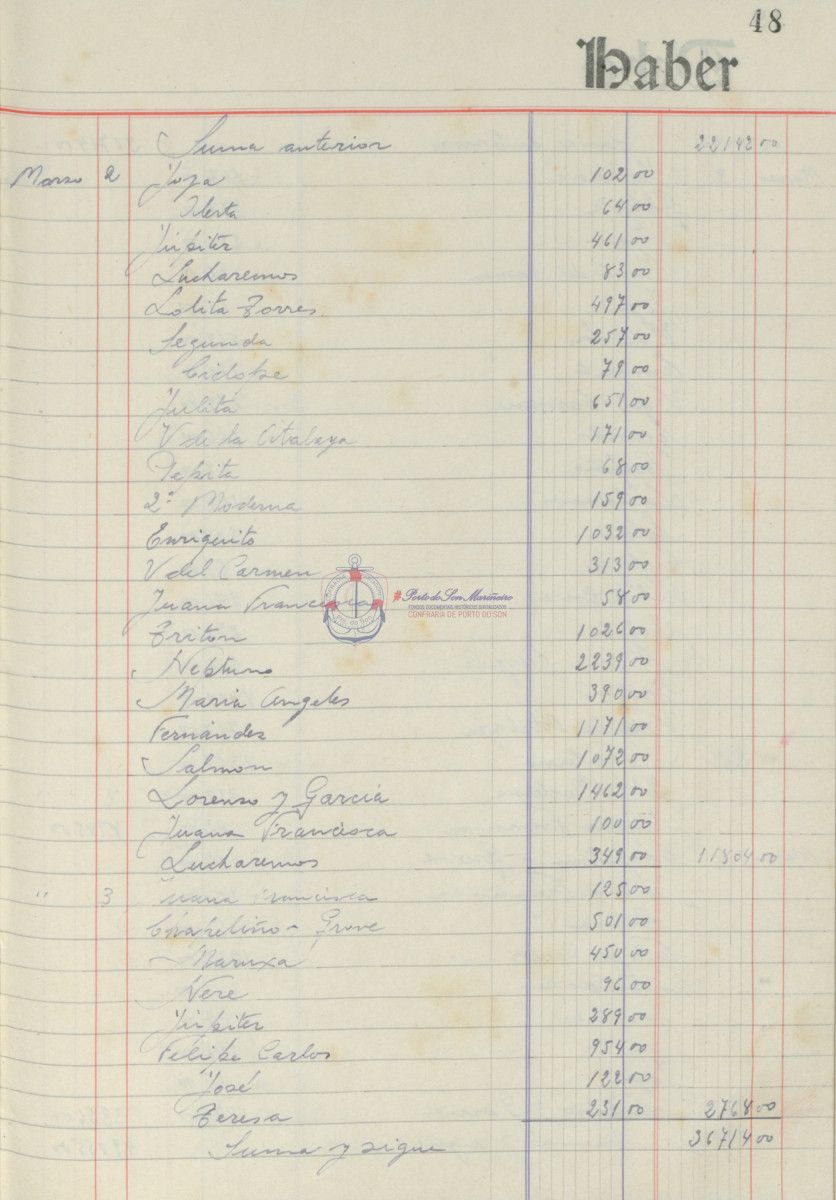 48
Haber
Suma anterior 22142 00
Marzo 2 Joya 102 00
Alerta 64 00
Júpiter 461 00
Lucharemos 83 00
Lolita Torres 497 00
Segunda 257 00
Ciclope 79 00
Julita 651 00
V de la Atalaya 171 00
Pepita 68 00
2ª Moderna 159 00
Enriquito 1032 00
V del Carmen 313 00
Juana Francisca 58 00
#PortodoSonMariñeiro
CONFRARIA DE PORTO DO SON
Triton 1026 00
Neptuno 2239 00
Maria Angeles 390 00
Fernández 1171 00
Salmon 1072 00
Lorenzo y García 1462 00
Juana Francisca 100 00
Lucharemos 349 00 11804 00
" 3 Juana Francisca 125 00
Chapeliño - Grove 501 00
Maruxa 450 00
Nere 96 00
Júpiter 289 00
Felipe Carlos 954 00
José 122 00
Teresa 231 00 2768 00
Suma y sigue 36714 00